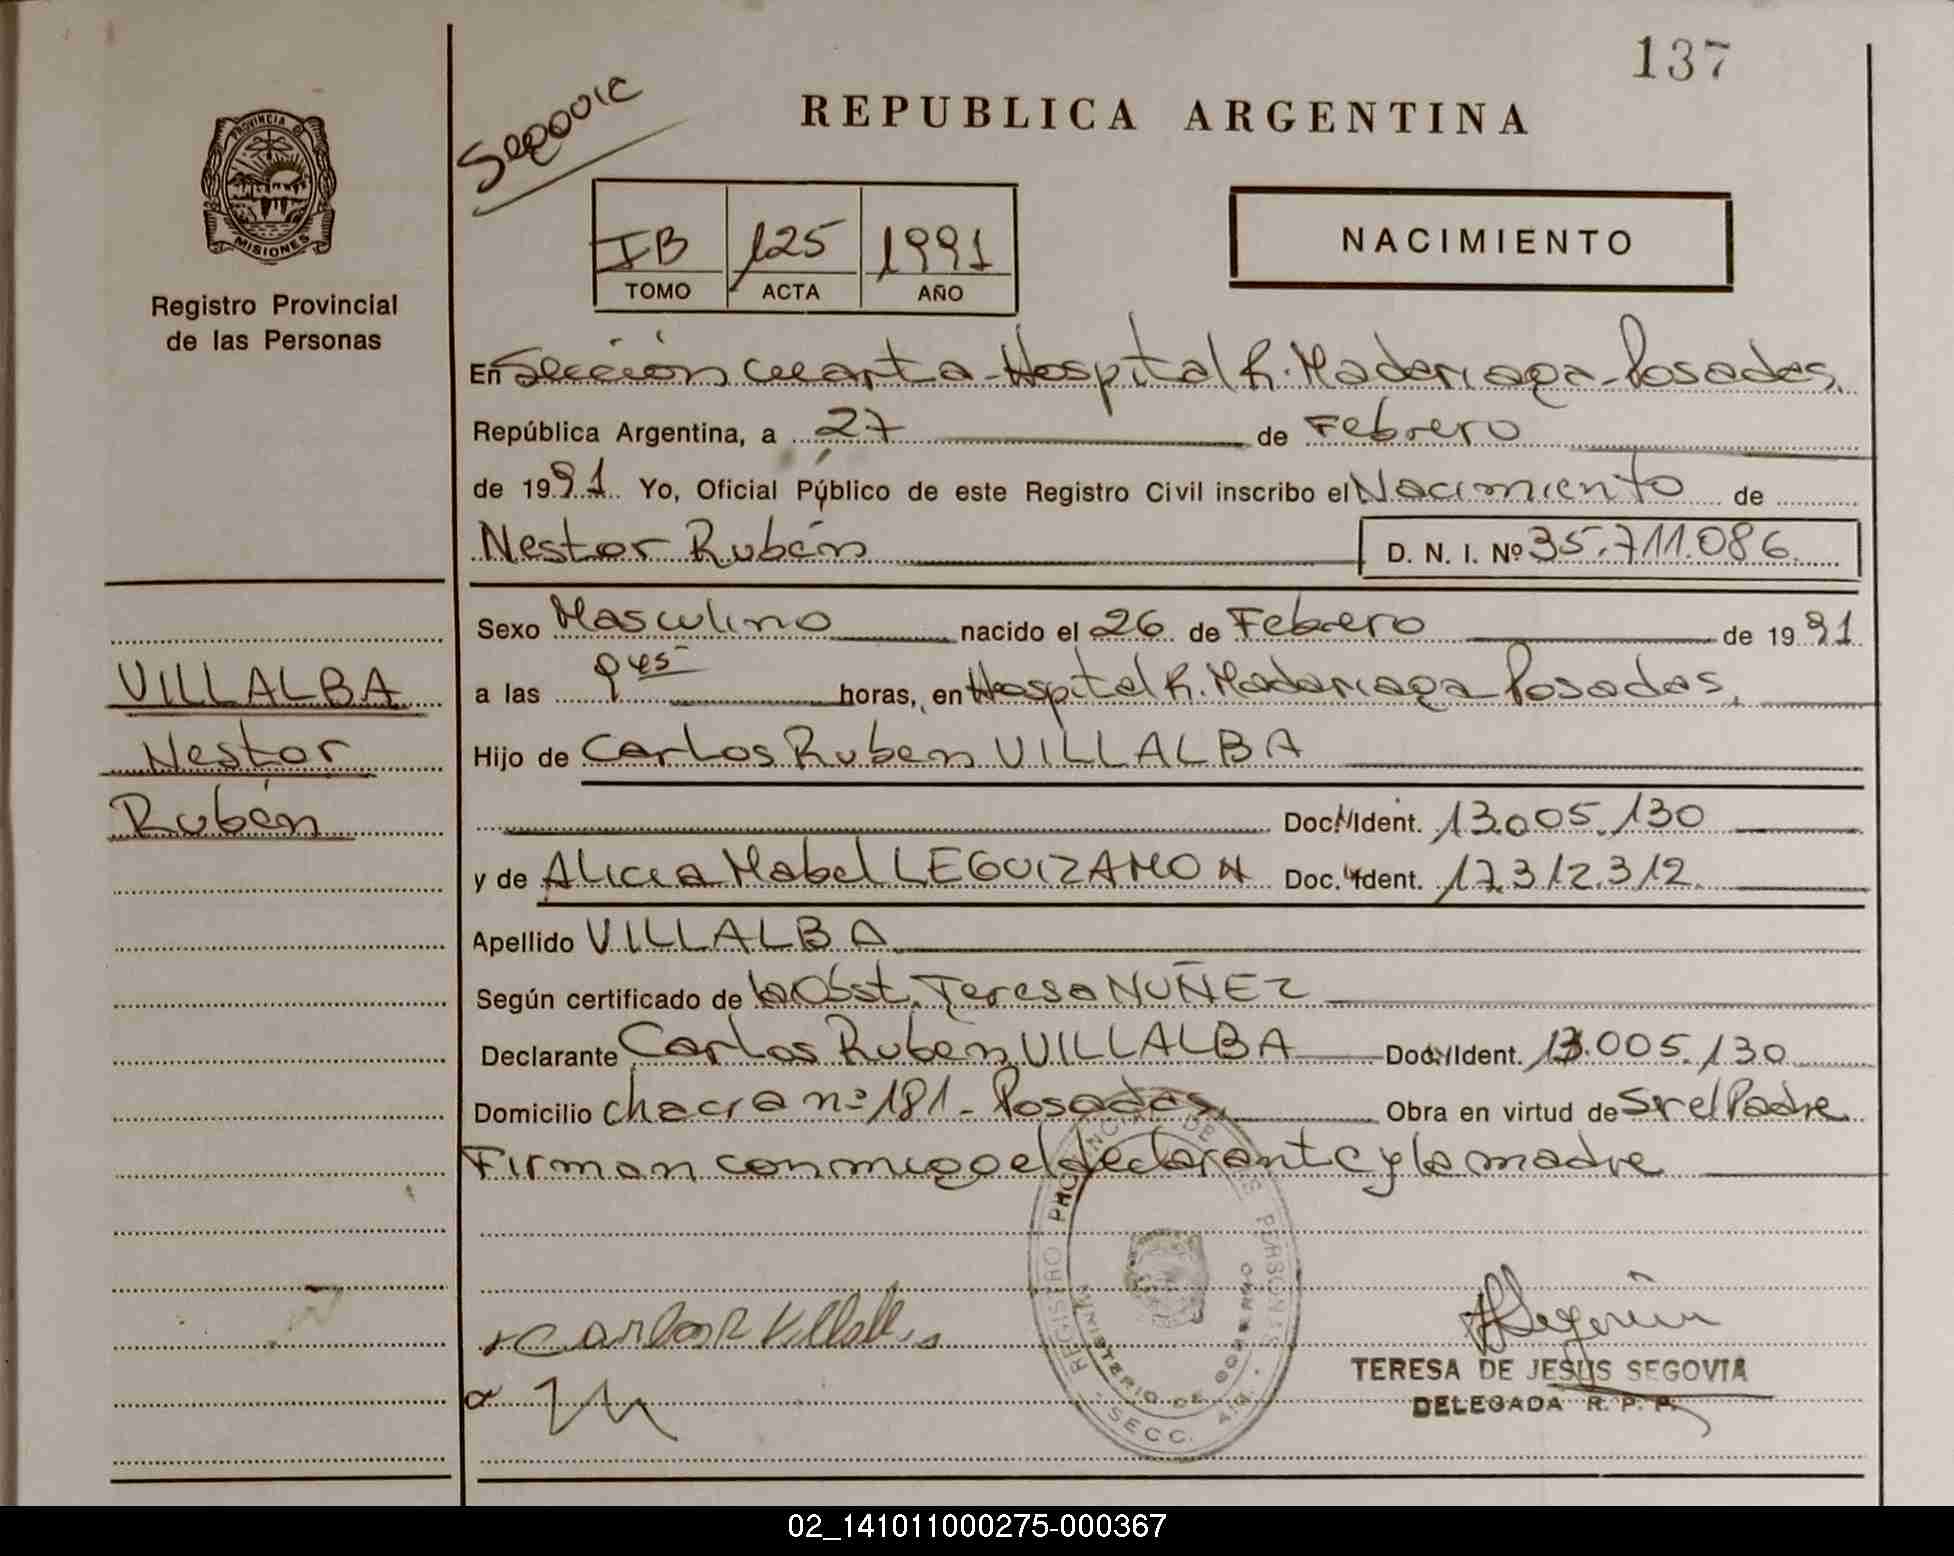 137
Segovia
REPUBLICA ARGENTINA
PROVINCIA D
MISIONES
Registro Provincial
de las Personas
IB 125 1991
TOMO ACTA AÑO
NACIMIENTO
En Sección cuarta - Hospital R. Madariaga - Posadas.
República Argentina, a 27 de Febrero
de 1991 Yo, Oficial Público de este Registro Civil inscribo el Nacimiento de
Nestor Rubén D. N. I. Nº 35.711.086.
Sexo Masculino nacido el 26 de Febrero de 1991
a las horas, en Hospital R. Madariaga Posadas,
VILLALBA
Nestor
Rubén
Hijo de Carlos Ruben VILLALBA
Doc. Ident. 13.005.130
y de Alicia Mabel LEGUIZAMON Doc. Ident. 17.312.312.
Apellido VILLALBA
Según certificado de la Obst. Teresa NUÑEZ
Declarante Carlos Rubén VILLALBA Doc. Ident. 13.005.130
Domicilio chacra nº 181 - Posadas, Obra en virtud de Ser el Padre
Firman conmigo el declarante y la madre
REGISTRO PROVINCIAL DE LAS PERSONAS
MINISTERIO DE GOBIERNO
SECC. 4ta.
Carlos R Villalba
TERESA DE JESUS SEGOVIA
DELEGADA R. P. P.
02_141011000275-000367